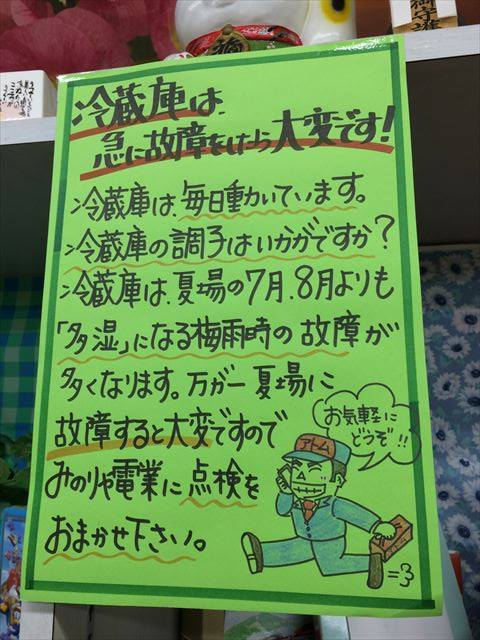 冷蔵庫は
急に故障をしたら大変です!
冷蔵庫は、毎日動いています。
冷蔵庫の調子はいかがですか?
冷蔵庫は、夏場の7月、8月よりも
「多湿」になる梅雨時の故障が
多くなります。万が一夏場に
故障すると大変ですので
みのりや電業に点検を
おまかせ下さい。
お気軽に
どうぞ!!
アトム